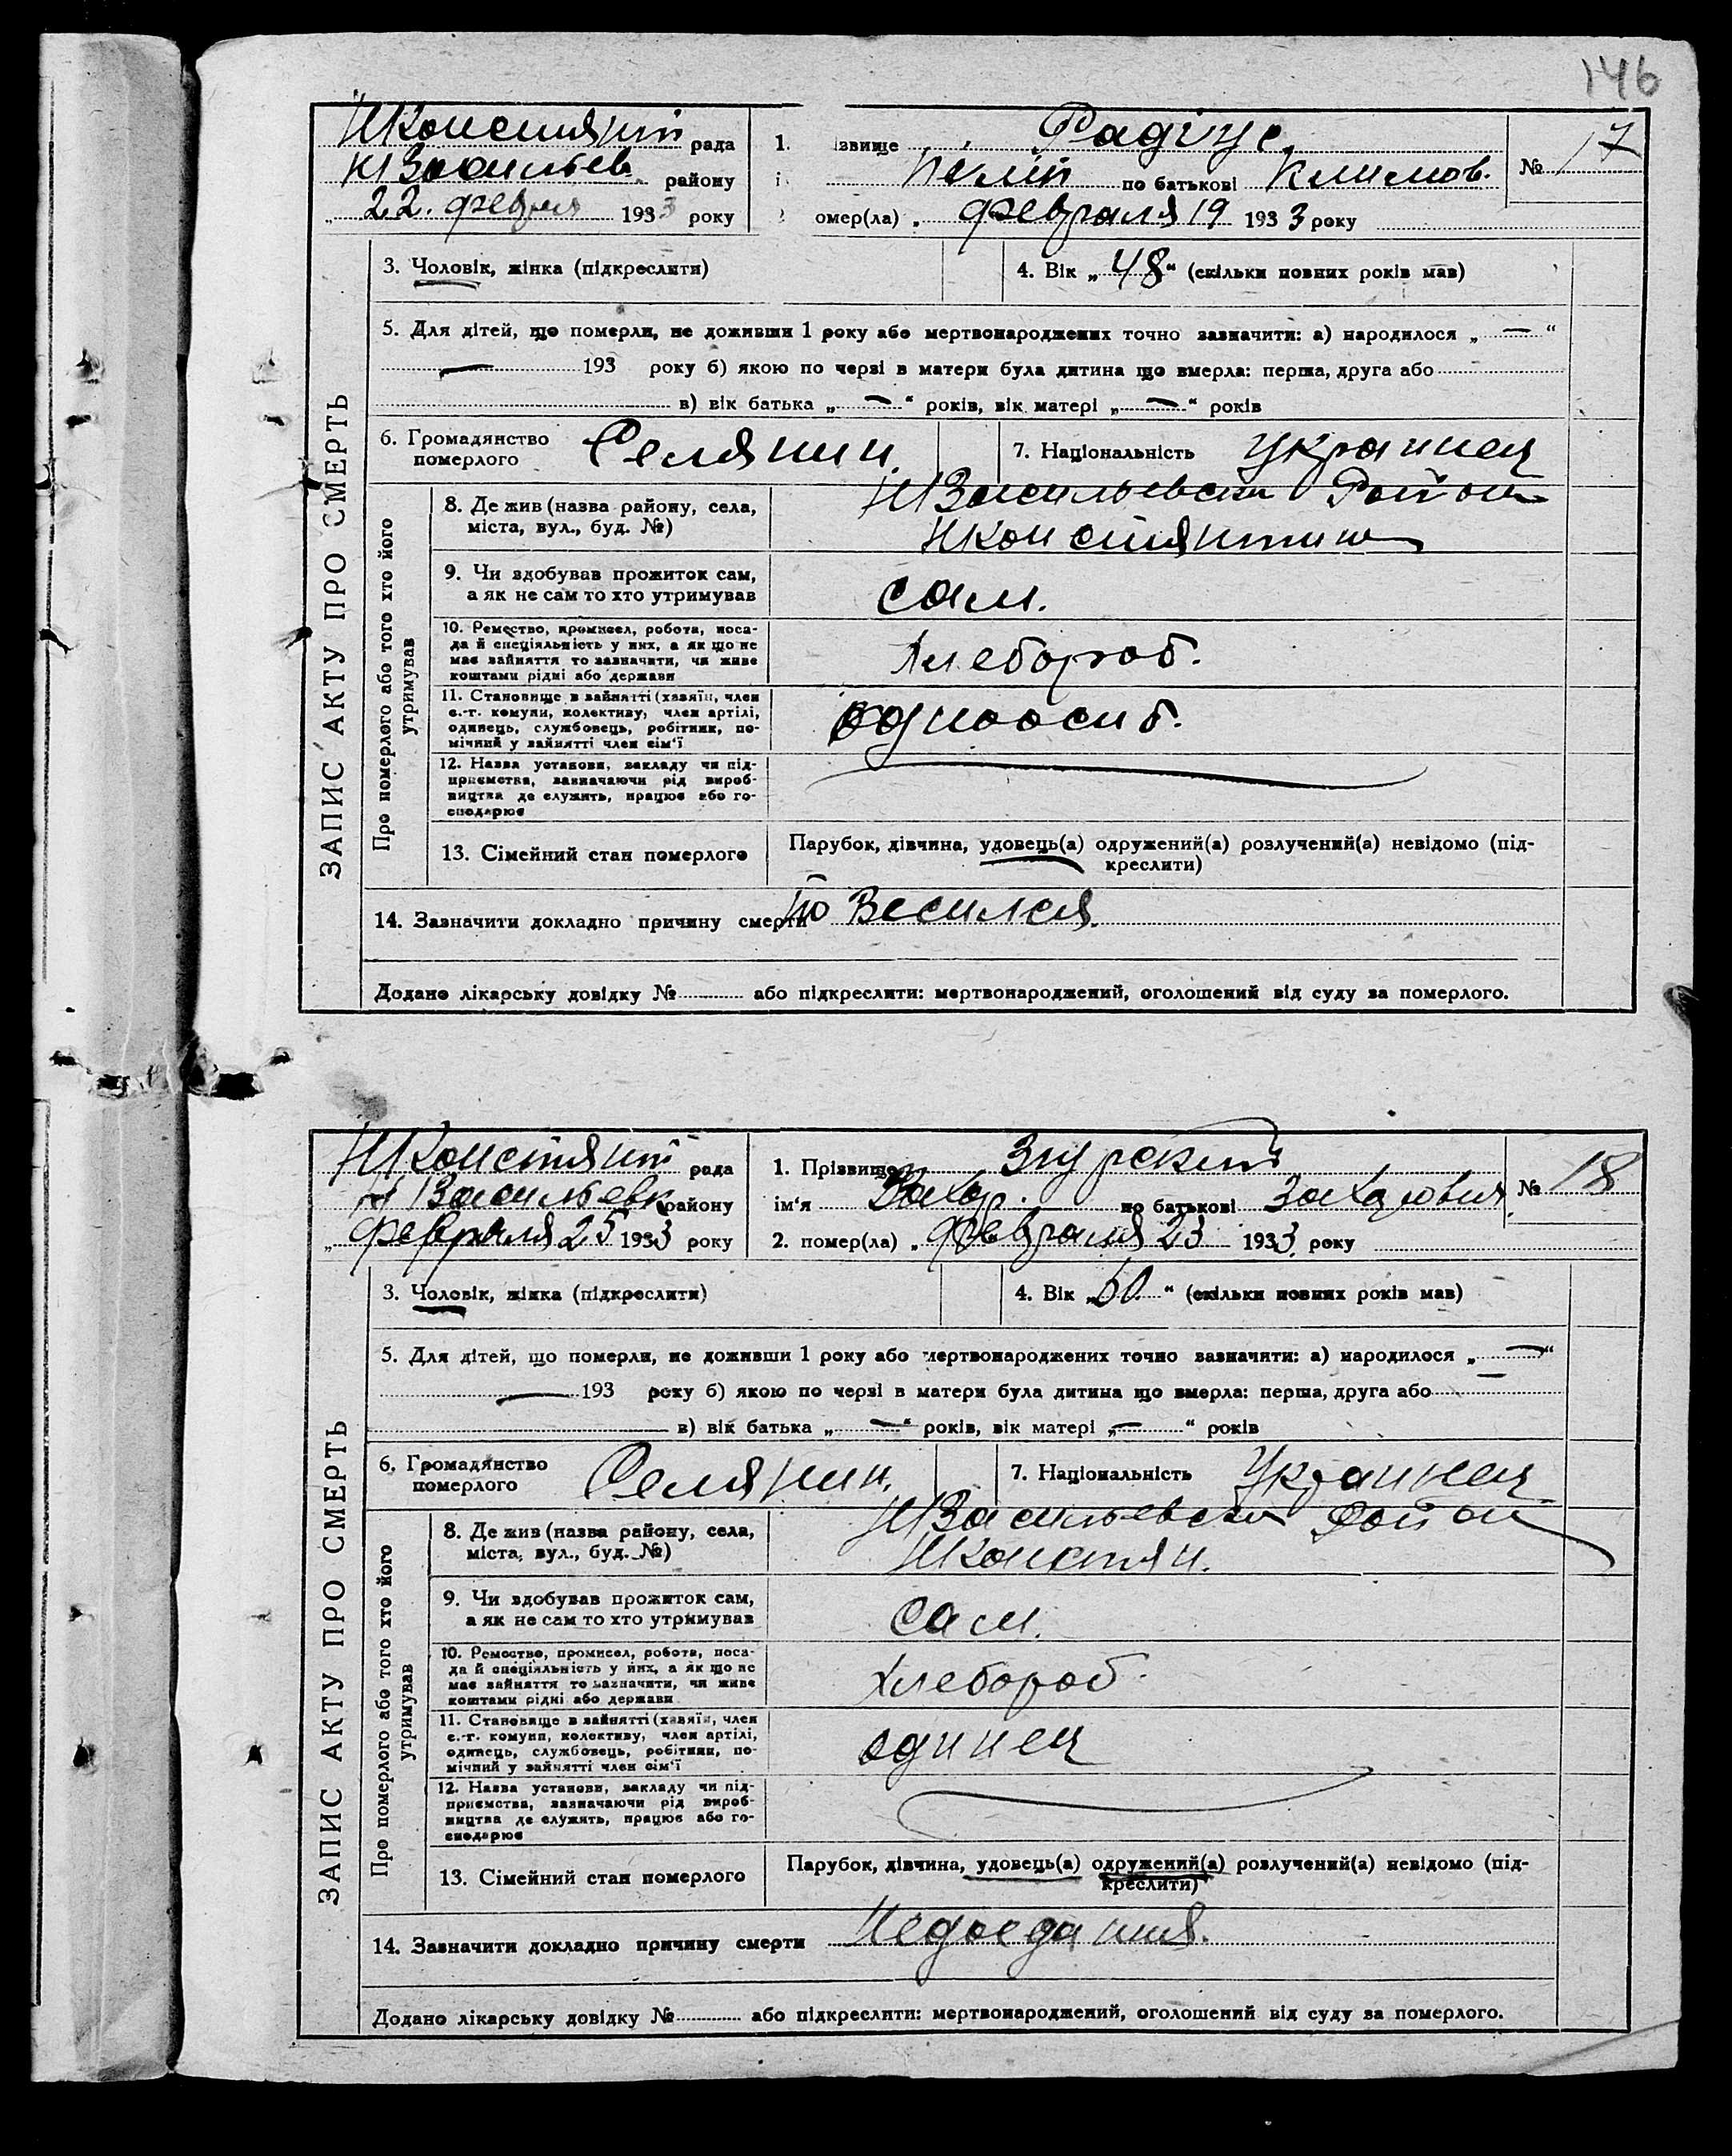 146
ЗАПИС АКТУ ПРО СМЕРТЬ
НКонстянт рада
НВасильев району
„ 22. феврля 1933 року
1. ізвище Радіус
і по батькові Климов.
омер(ла) „ февраля 19 1933 року
№ 17
3. Чоловік, жінка (підкреслити)
4. Вік „48“ (скільки повних років мав)
5. Для дітей, що померли, не доживши 1 року або мертвонароджених точно зазначити: а) народилося „ — “
— 193 року б) якою по черзі в матери була дитина що вмерла: перша, друга або
в) вік батька „ — “ років, вік матері „ — “ років
6. Громадянство
померлого Селянин.
7. Національність Украинец
Про померлого або того хто його
утримував
8. Де жив (назва району, села,
міста, вул., буд. №)
НВасильевски Район
НКонстянтин
9. Чи здобував прожиток сам,
а як не сам то хто утримував
сам.
10. Ремество, промисел, робота, поса-
да й спеціяльність у них, а як що не
має зайняття то зазначити, чи живе
коштами рідні або держави
Хлебороб.
11. Становище в зайнятті (хазяїн, член
с.-г. комуни, колективу, член артілі,
одинець, службовець, робітник, по-
мічний у зайнятті член сім'ї
одноосиб.
12. Назва установи, закладу чи під-
приємства, зазначаючи рід вироб-
ництва де служить, працює або го-
сподарює
13. Сімейний стан померлого
Парубок, дівчина, удовець(а) одружений(а) розлучений(а) невідомо (під-
креслити)
14. Зазначити докладно причину смерти
Додано лікарську довідку № або підкреслити: мертвонароджений, оголошений від суду за померлого.
ЗАПИС АКТУ ПРО СМЕРТЬ
НКонстянт рада
Н Васильевк району
„ февраля 25 1933 року
1. Прізвище Згурский
ім'я Захар. по батькові Захарович
2. помер(ла) „ февраля 23 1933. року
№ 18
3. Чоловік, жінка (підкреслити)
4. Вік „60“ (скільки повних років мав)
5. Для дітей, що померли, не доживши 1 року або мертвонароджених точно зазначити: а) народилося „ — “
— 193 року б) якою по черзі в матери була дитина що вмерла: перша, друга або
в) вік батька „ — “ років, вік матері „ — “ років
6. Громадянство
померлого Селянин.
7. Національність Украинец
Про померлого або того хто його
утримував
8. Де жив (назва району, села,
міста, вул., буд. №)
НВасильевски Район
НКонстян.
9. Чи здобував прожиток сам,
а як не сам то хто утримував
сам.
10. Ремество, промисел, робота, поса-
да й спеціяльність у них, а як що не
має зайняття то зазначити, чи живе
коштами рідні або держави
Хлебороб.
11. Становище в зайнятті (хазяїн, член
с.-г. комуни, колективу, член артілі,
одинець, службовець, робітник, по-
мічний у зайнятті член сім'ї
одинец
12. Назва установи, закладу чи під-
приємства, зазначаючи рід вироб-
ництва де служить, працює або го-
сподарює
13. Сімейний стан померлого
Парубок, дівчина, удовець(а) одружений(а) розлучений(а) невідомо (під-
креслити)
14. Зазначити докладно причину смерти Недоедания.
Додано лікарську довідку № або підкреслити: мертвонароджений, оголошений від суду за померлого.